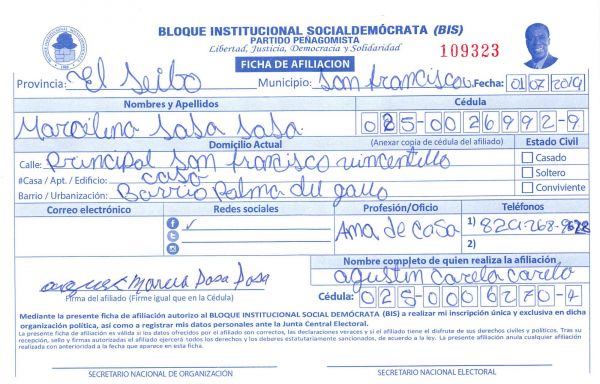 BLOQUE INSTITUCIONAL SOCIALDEMÓCRATA (BIS)
PARTIDO PEÑAGOMISTA
Libertad, Justicia, Democracia y Solidaridad
109323
FICHA DE AFILIACION
Provincia: El Seibo Municipio: San francisco Fecha: 01/07/2019
Nombres y Apellidos Cédula
Marcelina Sasa Sasa 025-0026992-9
Domicilio Actual (Anexar copia de cédula del afiliado) Estado Civil
Calle: Principal San francisco vincentillo Casado
#Casa / Apt. / Edificio: casa Soltero
Barrio / Urbanización: Barrio Palma del gallo Conviviente
Correo electrónico Redes sociales Profesión/Oficio Teléfonos
Ama de casa 1) 829-268-9628
2)
Nombre completo de quien realiza la afiliación
agustin Carela Carela
Firma del afiliado (Firme igual que en la Cédula) Cédula: 025-0006270-4
Mediante la presente ficha de afiliación autorizo al BLOQUE INSTITUCIONAL SOCIAL DEMÓCRATA (BIS) a realizar mi inscripción única y exclusiva en dicha
organización política, así como a registrar mis datos personales ante la Junta Central Electoral.
La presente ficha de afiliación es válida si los datos ofrecidos por el afiliado son correctos, las declaraciones veraces y si el titular tiene el disfrute de sus derechos civiles y políticos. Tras su
recepción, sello y firmas autorizadas el afiliado ejercerá todos los derechos y los deberes estatutariamente sancionados, de acuerdo a la ley. La presente afiliación anula cualquier afiliación
realizada con anterioridad a la fecha que aparece en esta ficha.
SECRETARIO NACIONAL DE ORGANIZACIÓN SECRETARIO NACIONAL ELECTORAL